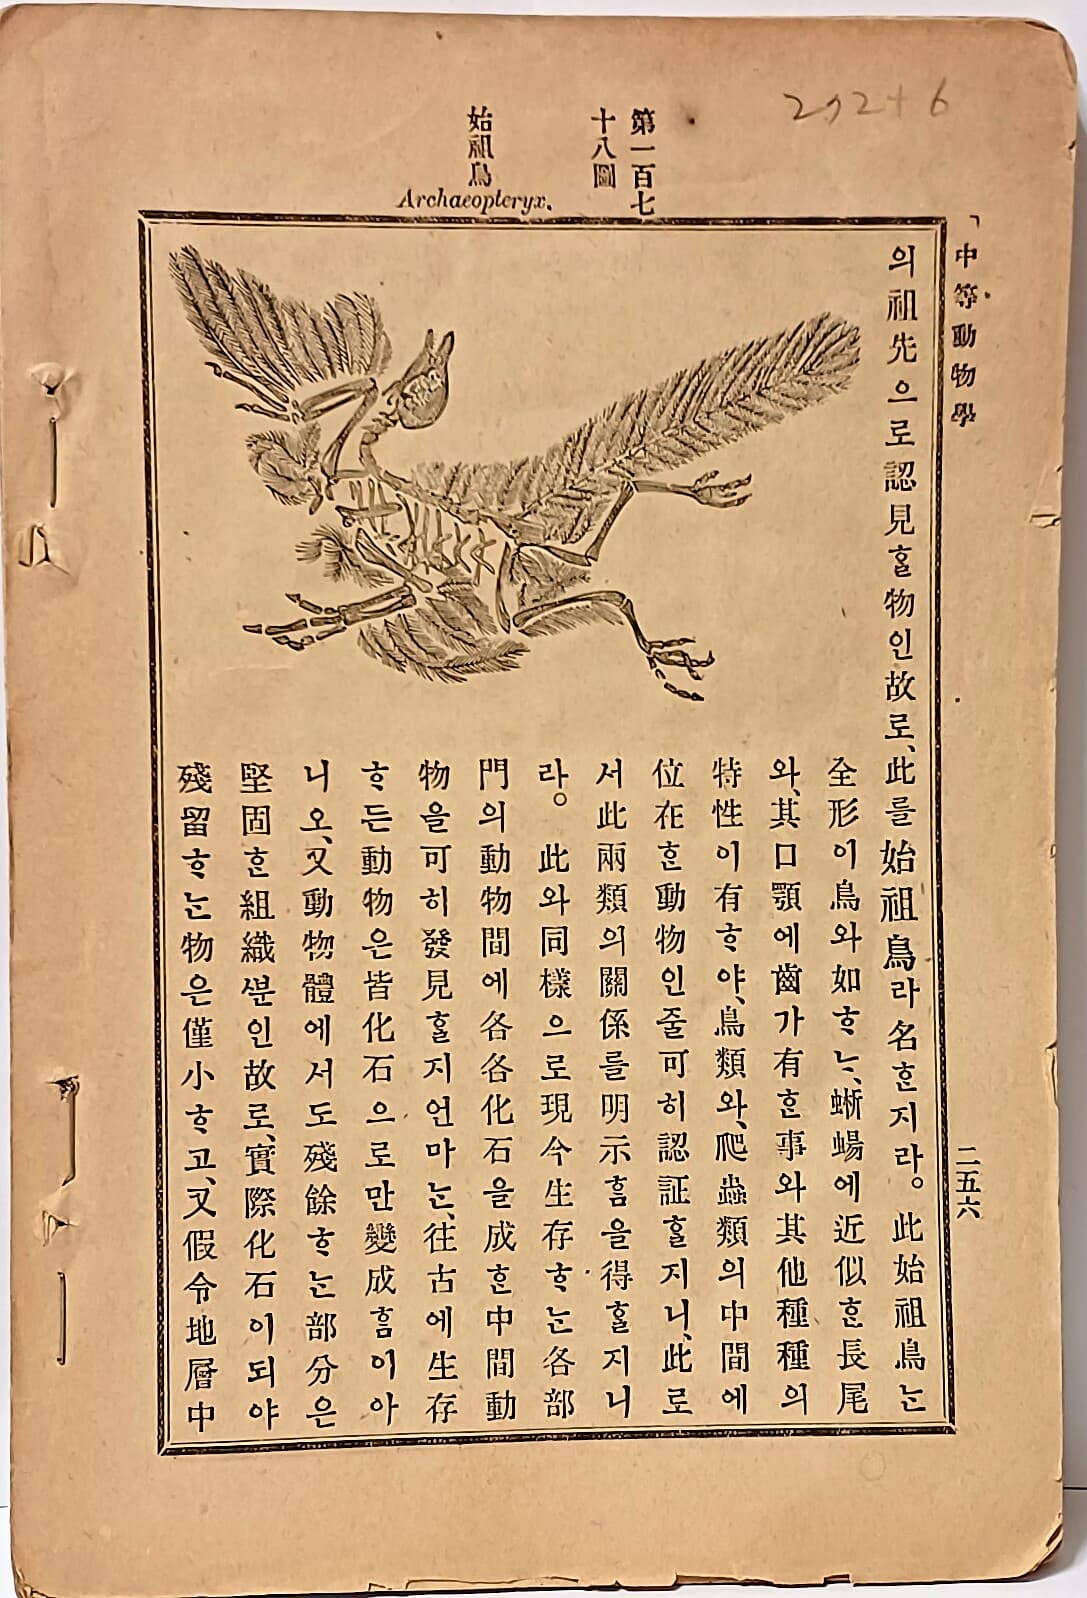 第一百七
十八圖
始祖鳥
Archaeopteryx.
中等動物學
二五六
의祖先으로認見ᄒᆞᆯ物인故로、此를始祖鳥라名ᄒᆞᆫ지라。此始祖鳥ᄂᆞᆫ
全形이鳥와如ᄒᆞᄂᆞ、蜥蜴에近似ᄒᆞᆫ長尾
와、其口顎에齒가有ᄒᆞᆫ事와其他種種의
特性이有ᄒᆞ야、鳥類와、爬蟲類의中間에
位在ᄒᆞᆫ動物인줄可히認証ᄒᆞᆯ지니、此로
서此兩類의關係를明示ᄒᆞᆷ을得ᄒᆞᆯ지니
라。此와同樣으로現今生存ᄒᆞᄂᆞᆫ各部
門의動物間에各各化石을成ᄒᆞᆫ中間動
物을可히發見ᄒᆞᆯ지언마ᄂᆞᆫ、往古에生存
ᄒᆞ든動物은皆化石으로만變成ᄒᆞᆷ이아
니오、又動物體에서도殘餘ᄒᆞᄂᆞᆫ部分은
堅固ᄒᆞᆫ組織ᄲᅮᆫ인故로、實際化石이되야
殘留ᄒᆞᄂᆞᆫ物은僅小ᄒᆞ고、又假令地層中